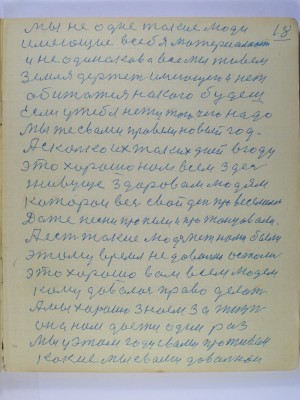 18
мы не одне такие люди
имеющие всебя материалност
и неодинакова всеми живем
Земля держет имеющих и нет
обижатся накого будеш
Если утебя нету того чего надо
Мы же свами провели новый год.
А сколко их таких дней вгоду
это хорошо нам всем здес
живуще здоровам людям
которои вес свой ден провесилили
Даже песни пропели и протонцовали
А ест такие люди нет
этому время не довали
это хорошо вам всем людем
кому довалос право делат
Амы хорошо знаем за жизн
она нам дается один раз
Мы уэтом году свами проживом
какие мы свами доволнои